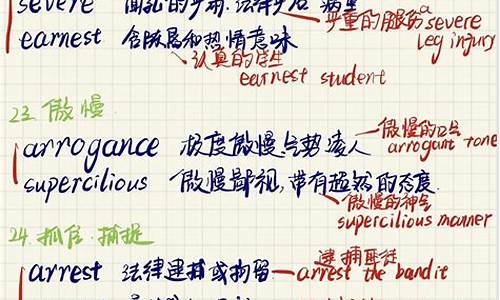 severe
严重的腿伤 a severe leg injury
earnest 含殷勤和热情意味
认真的学生
earnest student
23. 傲慢
arrogance 极度傲慢,气势凌人
傲慢的口气
arrogant tone
supercilious 傲慢鄙视,带有超然的态度.
傲慢的神气
supercilious manner
24. 抓住.捕捉
arrest 法律逮捕或拘留
逮捕匪徒
arrest the bandit